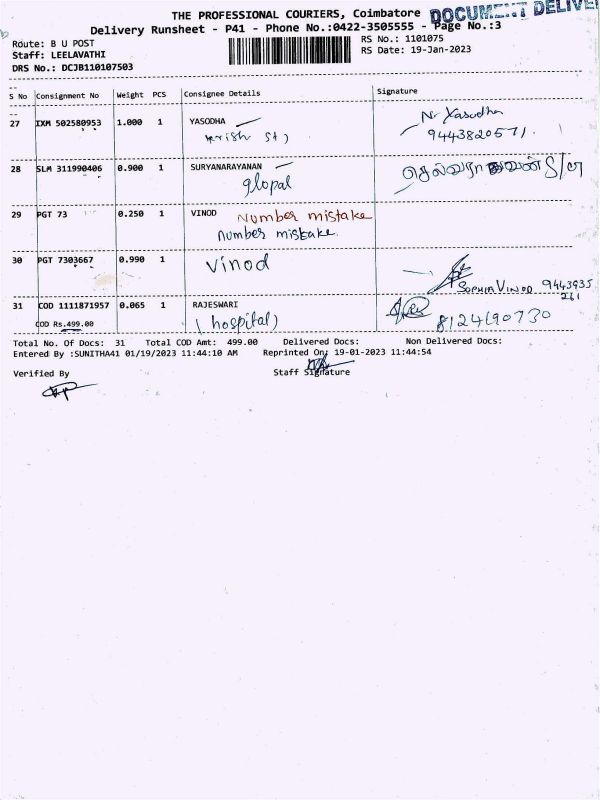 THE PROFESSIONAL COURIERS, Coimbatore
DOCUMENT DELIVE
Delivery Runsheet - P41 - Phone No.:0422-3505555 - Page No.:3
Route: B U POST
Staff: LEELAVATHI
DRS No.: DCJB110107503
RS No.: 1101075
RS Date: 19-Jan-2023
S No Consignment No Weight PCS Consignee Details Signature
27 IXM 502580953 1.000 1 YASODHA Yasodha
9443820571.
28 SLM 311990406 0.900 1 SURYANARAYANAN
glopal S/o
29 PGT 73 0.250 1 VINOD Number mistake
Number mistake.
30 PGT 7303667 0.990 1 Vinod
Sophia Vinod 9443935
261
31 COD 1111871957 0.065 1 RAJESWARI
COD Rs.499.00 (hospital) 8124690730
Total No. Of Docs: 31 Total COD Amt: 499.00 Delivered Docs: Non Delivered Docs:
Entered By :SUNITHA41 01/19/2023 11:44:10 AM Reprinted On: 19-01-2023 11:44:54
Verified By Staff Signature